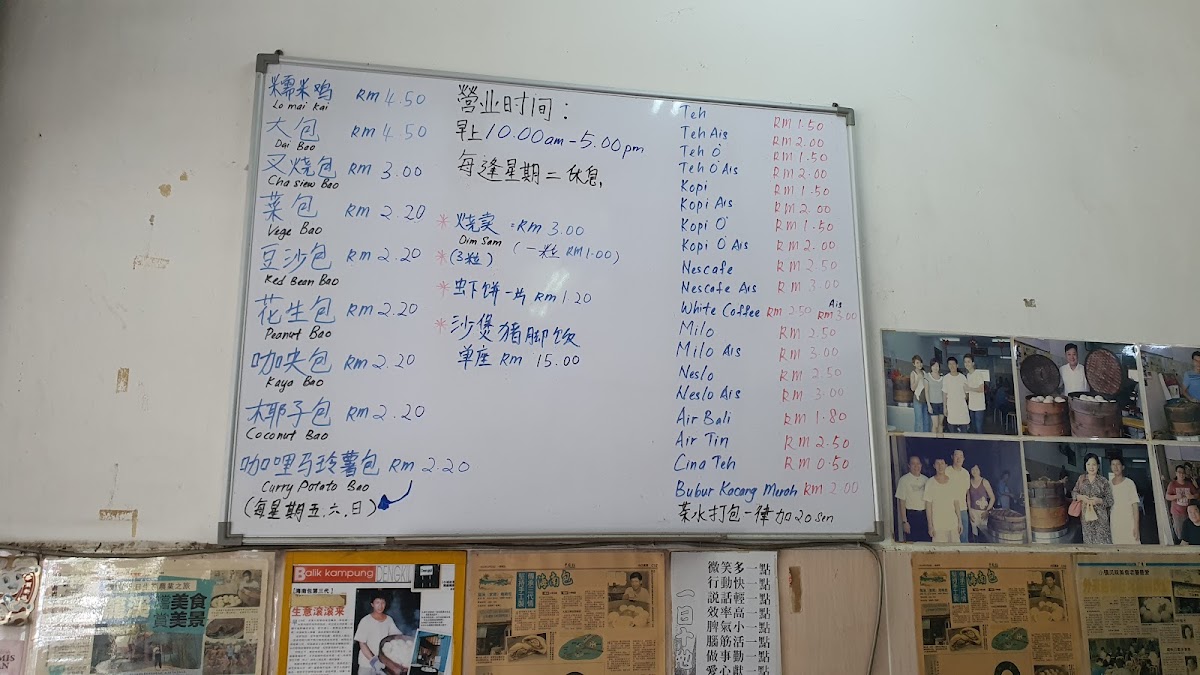 糯米鸡 RM 4.50
Lo mai kai
大包 RM 4.50
Dai Bao
叉烧包 RM 3.00
Cha siew Bao
菜包 RM 2.20
Vege Bao
豆沙包 RM 2.20
Red Bean Bao
花生包 RM 2.20
Peanut Bao
咖央包 RM 2.20
Kaya Bao
椰子包 RM 2.20
Coconut Bao
咖哩马玲薯包 RM 2.20
Curry Potato Bao
(每星期五.六.日)
营业时间:
早上10.00am-5.00pm
每逢星期二休息,
*烧卖 =RM 3.00
Dim Sam (一粒 RM1.00)
*(3粒)
*虾饼一片 RM 1.20
*沙煲猪脚饭
单座 RM 15.00
Teh RM 1.50
Teh Ais RM 2.00
Teh O' RM 1.50
Teh O' Ais RM 2.00
Kopi RM 1.50
Kopi Ais RM 2.00
Kopi O' RM 1.50
Kopi O' Ais RM 2.00
Nescafe RM 2.50
Nescafe Ais RM 3.00
White Coffee RM 2.50 Ais RM 3.00
Milo RM 2.50
Milo Ais RM 3.00
Neslo RM 2.50
Neslo Ais RM 3.00
Air Bali RM 1.80
Air Tin RM 2.50
Cina Teh RM 0.50
Bubur Kacang Merah RM 2.00
茶水打包一律加20sen
美食
美景
Balik kampung DENGKIL
生意滚滚来
海南包
一日十些
微笑多一點
行動快一點
說話輕一點
效率高一點
脾氣小一點
腦筋活一點
做事勤一點
愛心獻一點